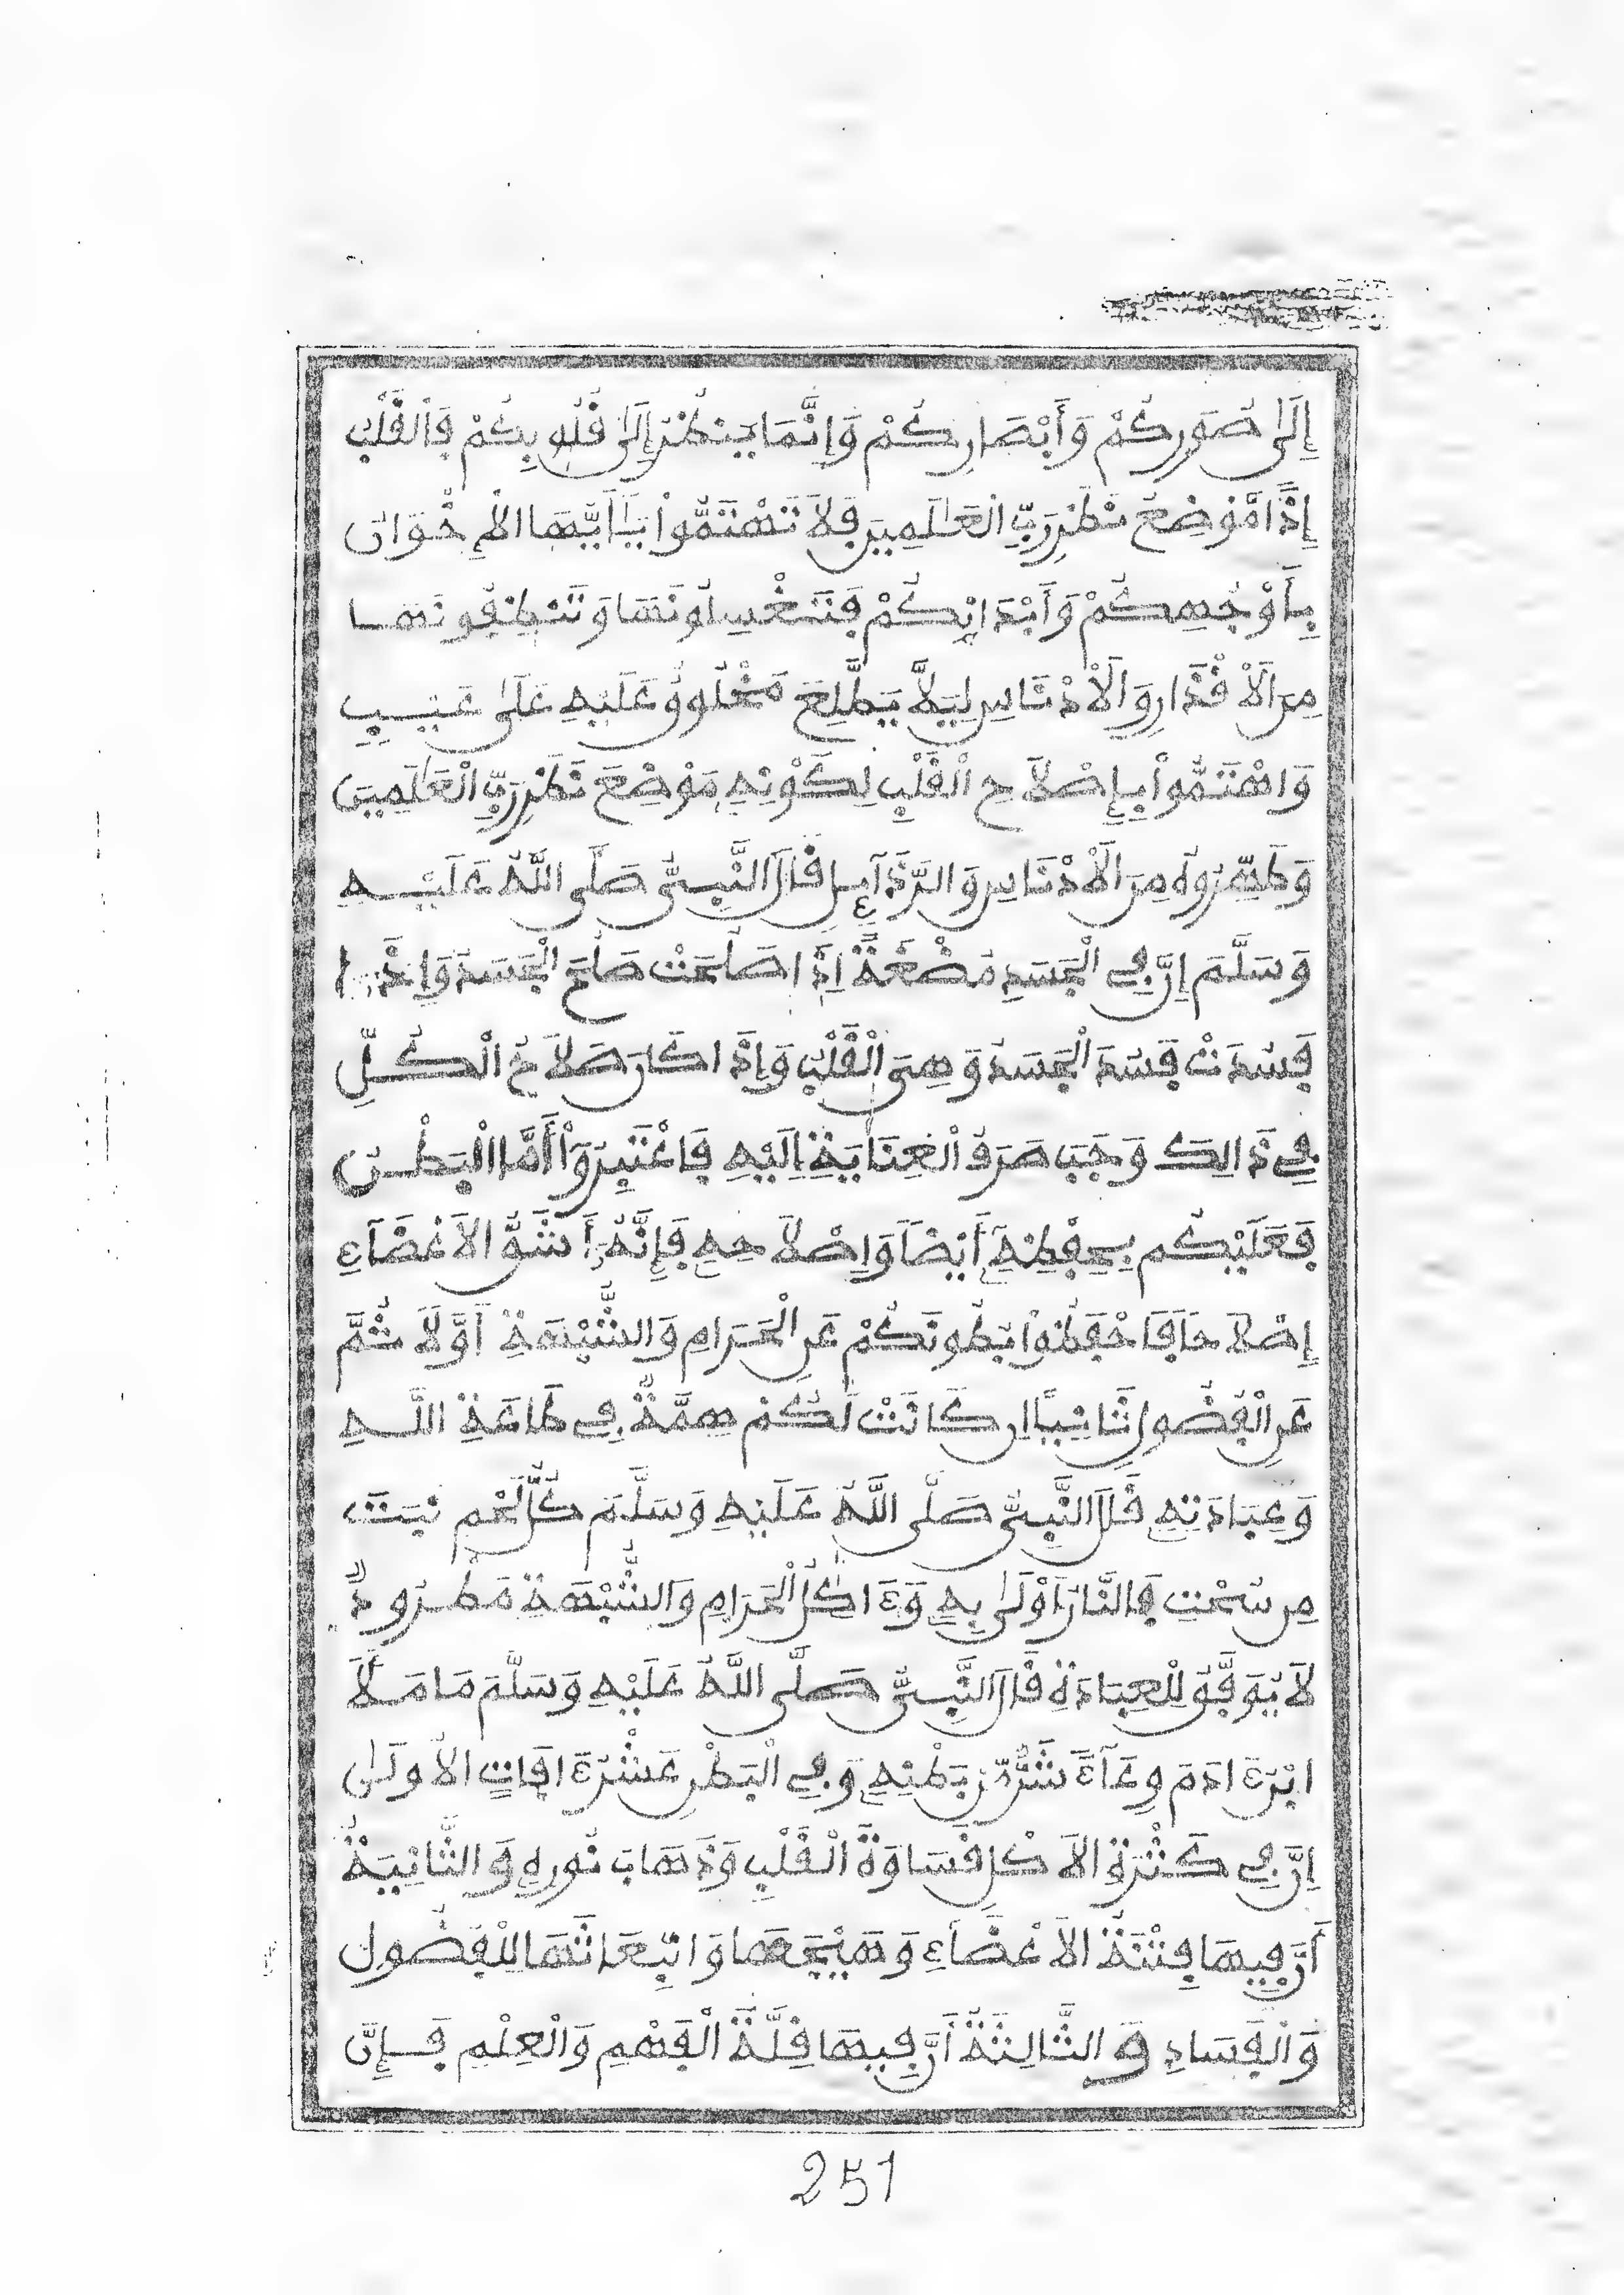 إِلَىٰ صُوَرِكُمْ وَأَبْصَارِكُمْ وَإِنَّمَا يَنظُرُ إِلَىٰ قُلُوبِكُمْ فَالْقَلْبُ
إِذًا مَّوْضِعُ نَظَرِ رَبِّ الْعَالَمِينَ فَلَا تَهْتَمُّواْ يَا أَيُّهَا الْإِخْوَانُ
بِأَوْجُهِكُمْ وَأَبْدَانِكُمْ فَتَغْسِلُونَهَا وَتُنَظِّفُونَهَا
مِنَ الْأَقْذَارِ وَالْأَدْنَاسِ لِيَلَّا يَطَّلِعَ مَخْلُوقٌ عَلَيْهِ عَلَىٰ عَيْبٍ
وَاهْتَمُّواْ بِإِصْلَاحِ الْقَلْبِ لِكَوْنِهِ مَوْضِعَ نَظَرِ رَبِّ الْعَالَمِينَ
وَطَهِّرُوهُ مِنَ الْأَدْنَاسِ وَالرَّذَآئِلِ قَالَ النَّبِيُّ صَلَّى اللَّهُ عَلَيْهِ
وَسَلَّمَ إِنَّ فِي الْجَسَدِ مُضْغَةً إِذَا صَلُحَتْ صَلُحَ الْجَسَدُ وَإِذَا
فَسُدَتْ فَسُدَ الْجَسَدُ وَهِيَ الْقَلْبُ وَإِذَا كَانَ صَلَاحُ الْكُلِّ
فِي ذَالِكَ وَجَبَ صَرْفُ الْعِنَايَةِ إِلَيْهِ فَاعْتَبِرُواْ أَمَّا الْبَطْنُ
فَعَلَيْكُم بِحِفْظِهِ أَيْضًا وَإِصْلَاحِهِ فَإِنَّهُ أَشَقُّ الْأَعْضَآءِ
إِصْلَاحًا فَاحْفَظُواْ بُطُونَكُمْ عَنِ الْحَرَامِ وَالشُّبْهَةِ أَوَّلًا ثُمَّ
عَنِ الْفُضُولِ ثَانِيًا إِن كَانَتْ لَكُمْ هِمَّةٌ فِي طَاعَةِ اللَّهِ
وَعِبَادَتِهِ قَالَ النَّبِيُّ صَلَّى اللَّهُ عَلَيْهِ وَسَلَّمَ كُلُّ لَحْمٍ نَبَتَ
مِن سُحْتٍ فَالنَّارُ أَوْلَىٰ بِهِ وَءَاكِلُ الْحَرَامِ وَالشُّبْهَةِ مَطْرُودٌ
لَا يُوَفَّقُ لِلْعِبَادَةِ قَالَ النَّبِيُّ صَلَّى اللَّهُ عَلَيْهِ وَسَلَّمَ مَا مَلَأَ
ابْنُ ءَادَمَ وِعَآءً شَرٌّ مِّن بَطْنِهِ وَفِي الْبَطْنِ عَشْرُ ءَافَاتٍ الْأُولَىٰ
إِنَّ فِي كَثْرَةِ الْأَكْلِ قَسَاوَةَ الْقَلْبِ وَذَهَابَ نُورِهِ وَالثَّانِيَةُ
أَنَّ فِيهَا فِتْنَةَ الْأَعْضَآءِ وَهَيْجَهَا وَانْبِعَاثَهَا لِلْفُضُولِ
وَالْفَسَادِ وَالثَّالِثَةُ أَنَّ فِيهَا قِلَّةَ الْفَهْمِ وَالْعِلْمِ فَإِنَّ
251